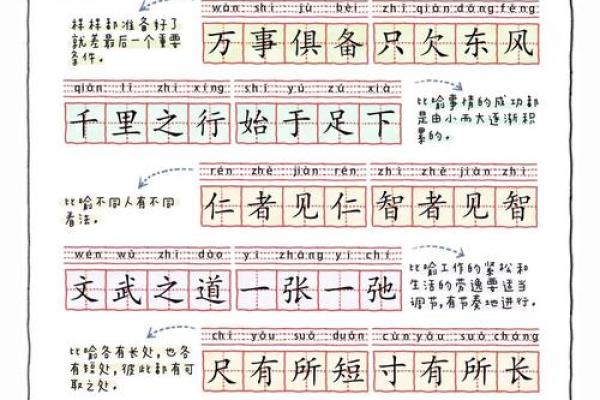 wàn shì jù bèi zhǐ qiàn dōng fēng
样样都准备好了
就差最后一个重要
条件。
万事俱备 只欠东风
qiān lǐ zhī xíng shǐ yú zú xià
千里之行 始于足下
比喻事情的成功都
是由小而大逐渐积
累的。
rén zhě jiàn rén zhì zhě jiàn zhì
比喻不同人有不同
看法。
仁者见仁 智者见智
wén wǔ zhī dào yì zhāng yì chí
文武之道 一张一弛
比喻工作的紧松和
生活的劳逸要适当
调节,有节奏地进行。
chǐ yǒu suǒ duǎn cùn yǒu suǒ cháng
比喻各有长处,也各
有短处,彼此都有可
取之处。
尺有所短 寸有所长